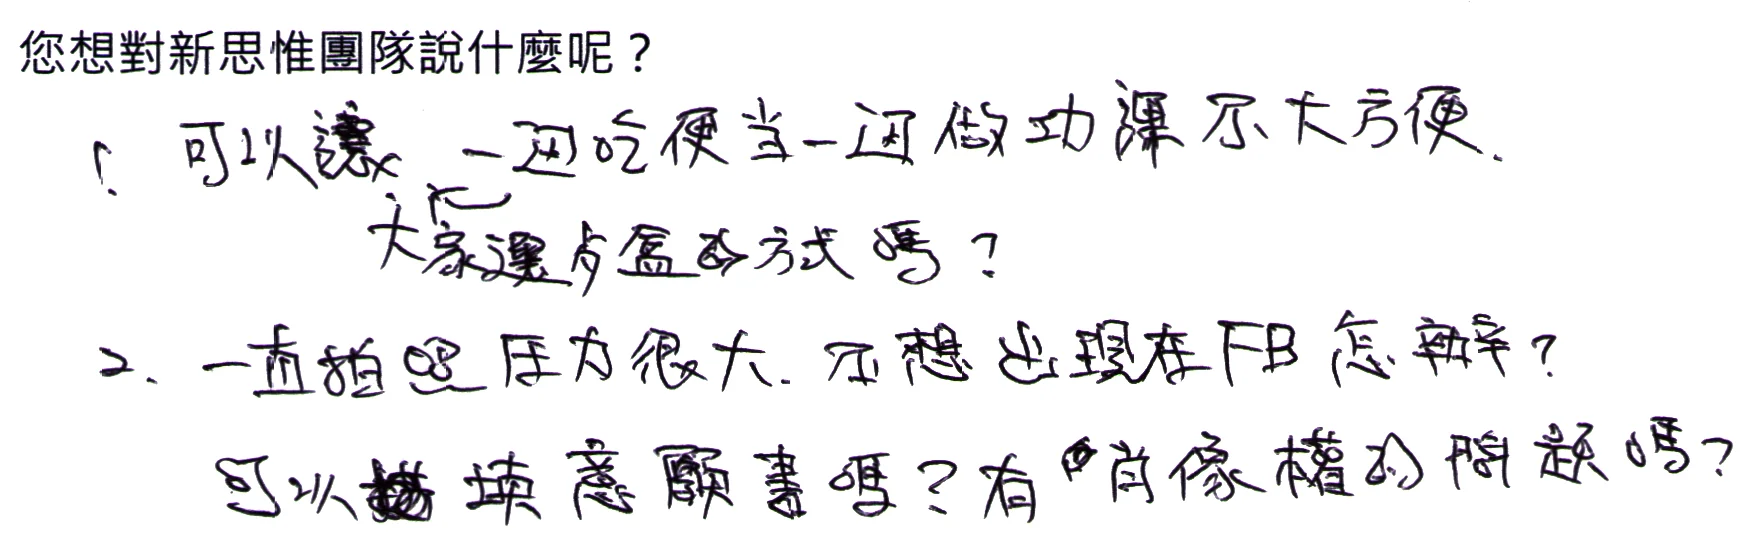 您想對新思惟團隊說什麼呢？
1. 可以讓 一边吃便当一边做功課不大方便.
大家選歺盒的方式嗎？
2. 一直拍照压力很大. 不想出現在FB怎辦？
可以填意願書嗎？有肖像權的問題嗎？